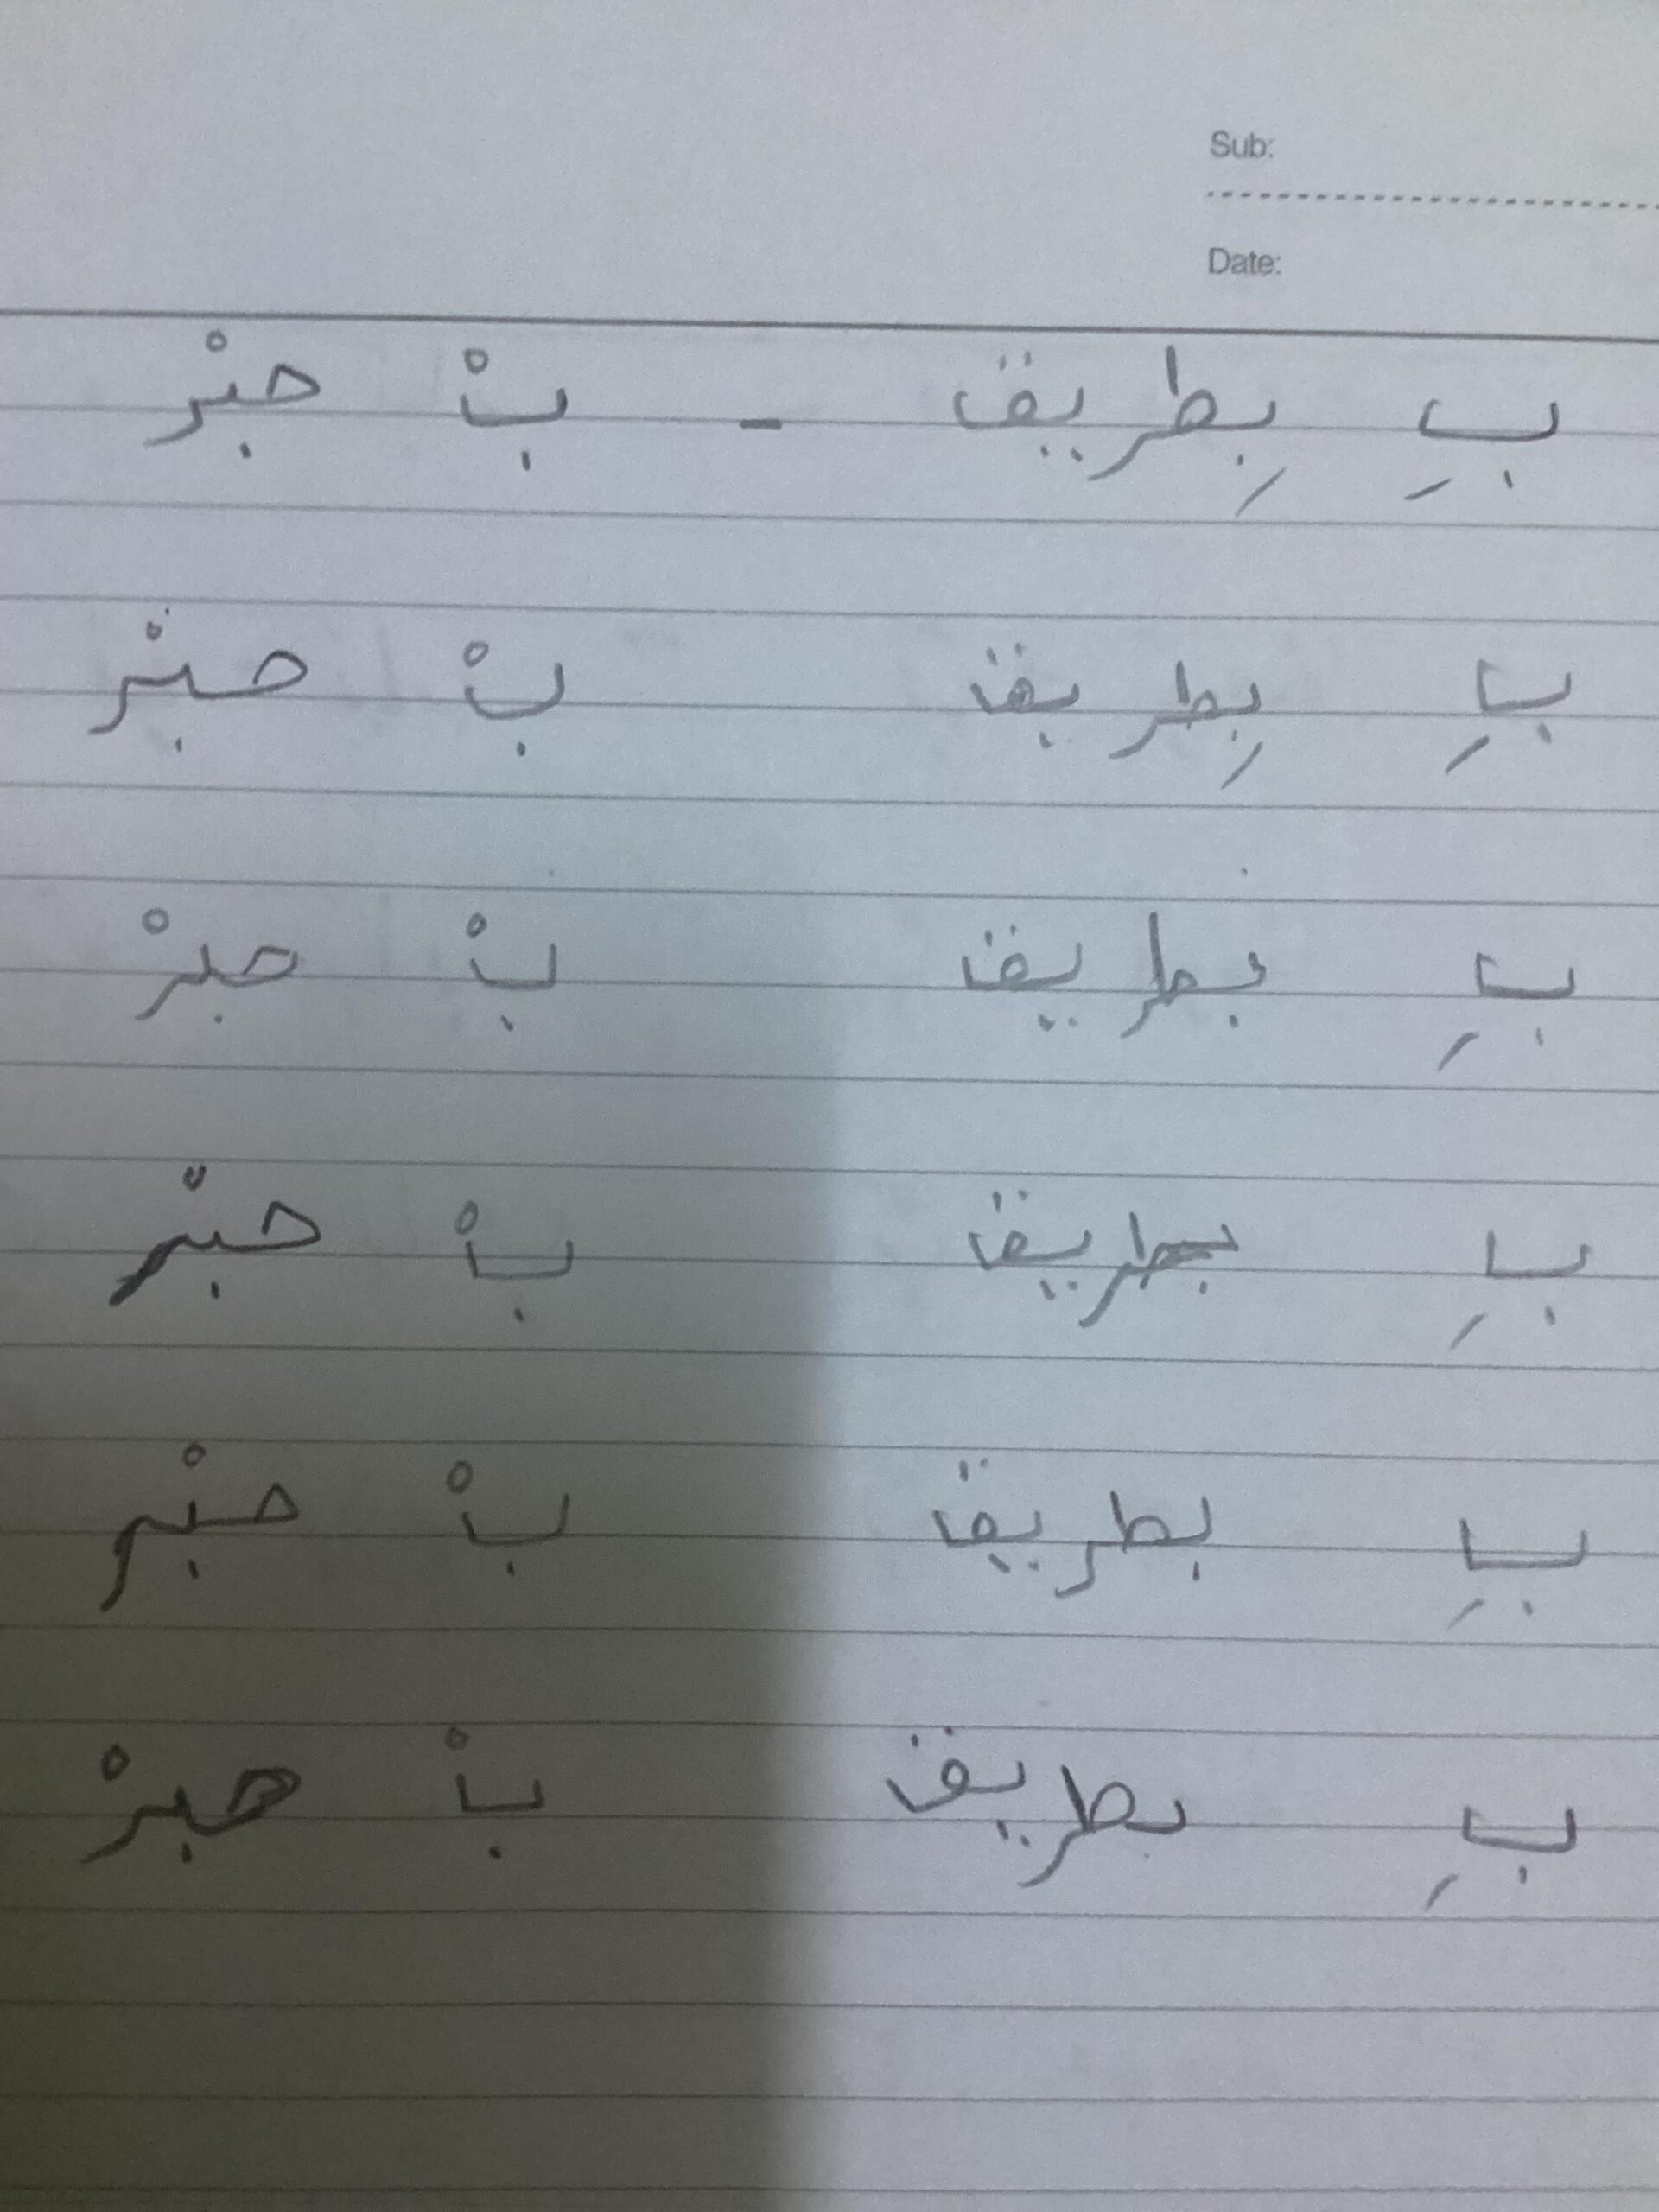 Sub:
Date:
بِ بِطريق - بْ حبْر
بِ بِطريق بْ حبْر
بِ بطريق بْ حبرْ
بِ بطريق بْ حبْر
بِ بطريق بْ حبْر
بِ بطريق بْ حبرْ